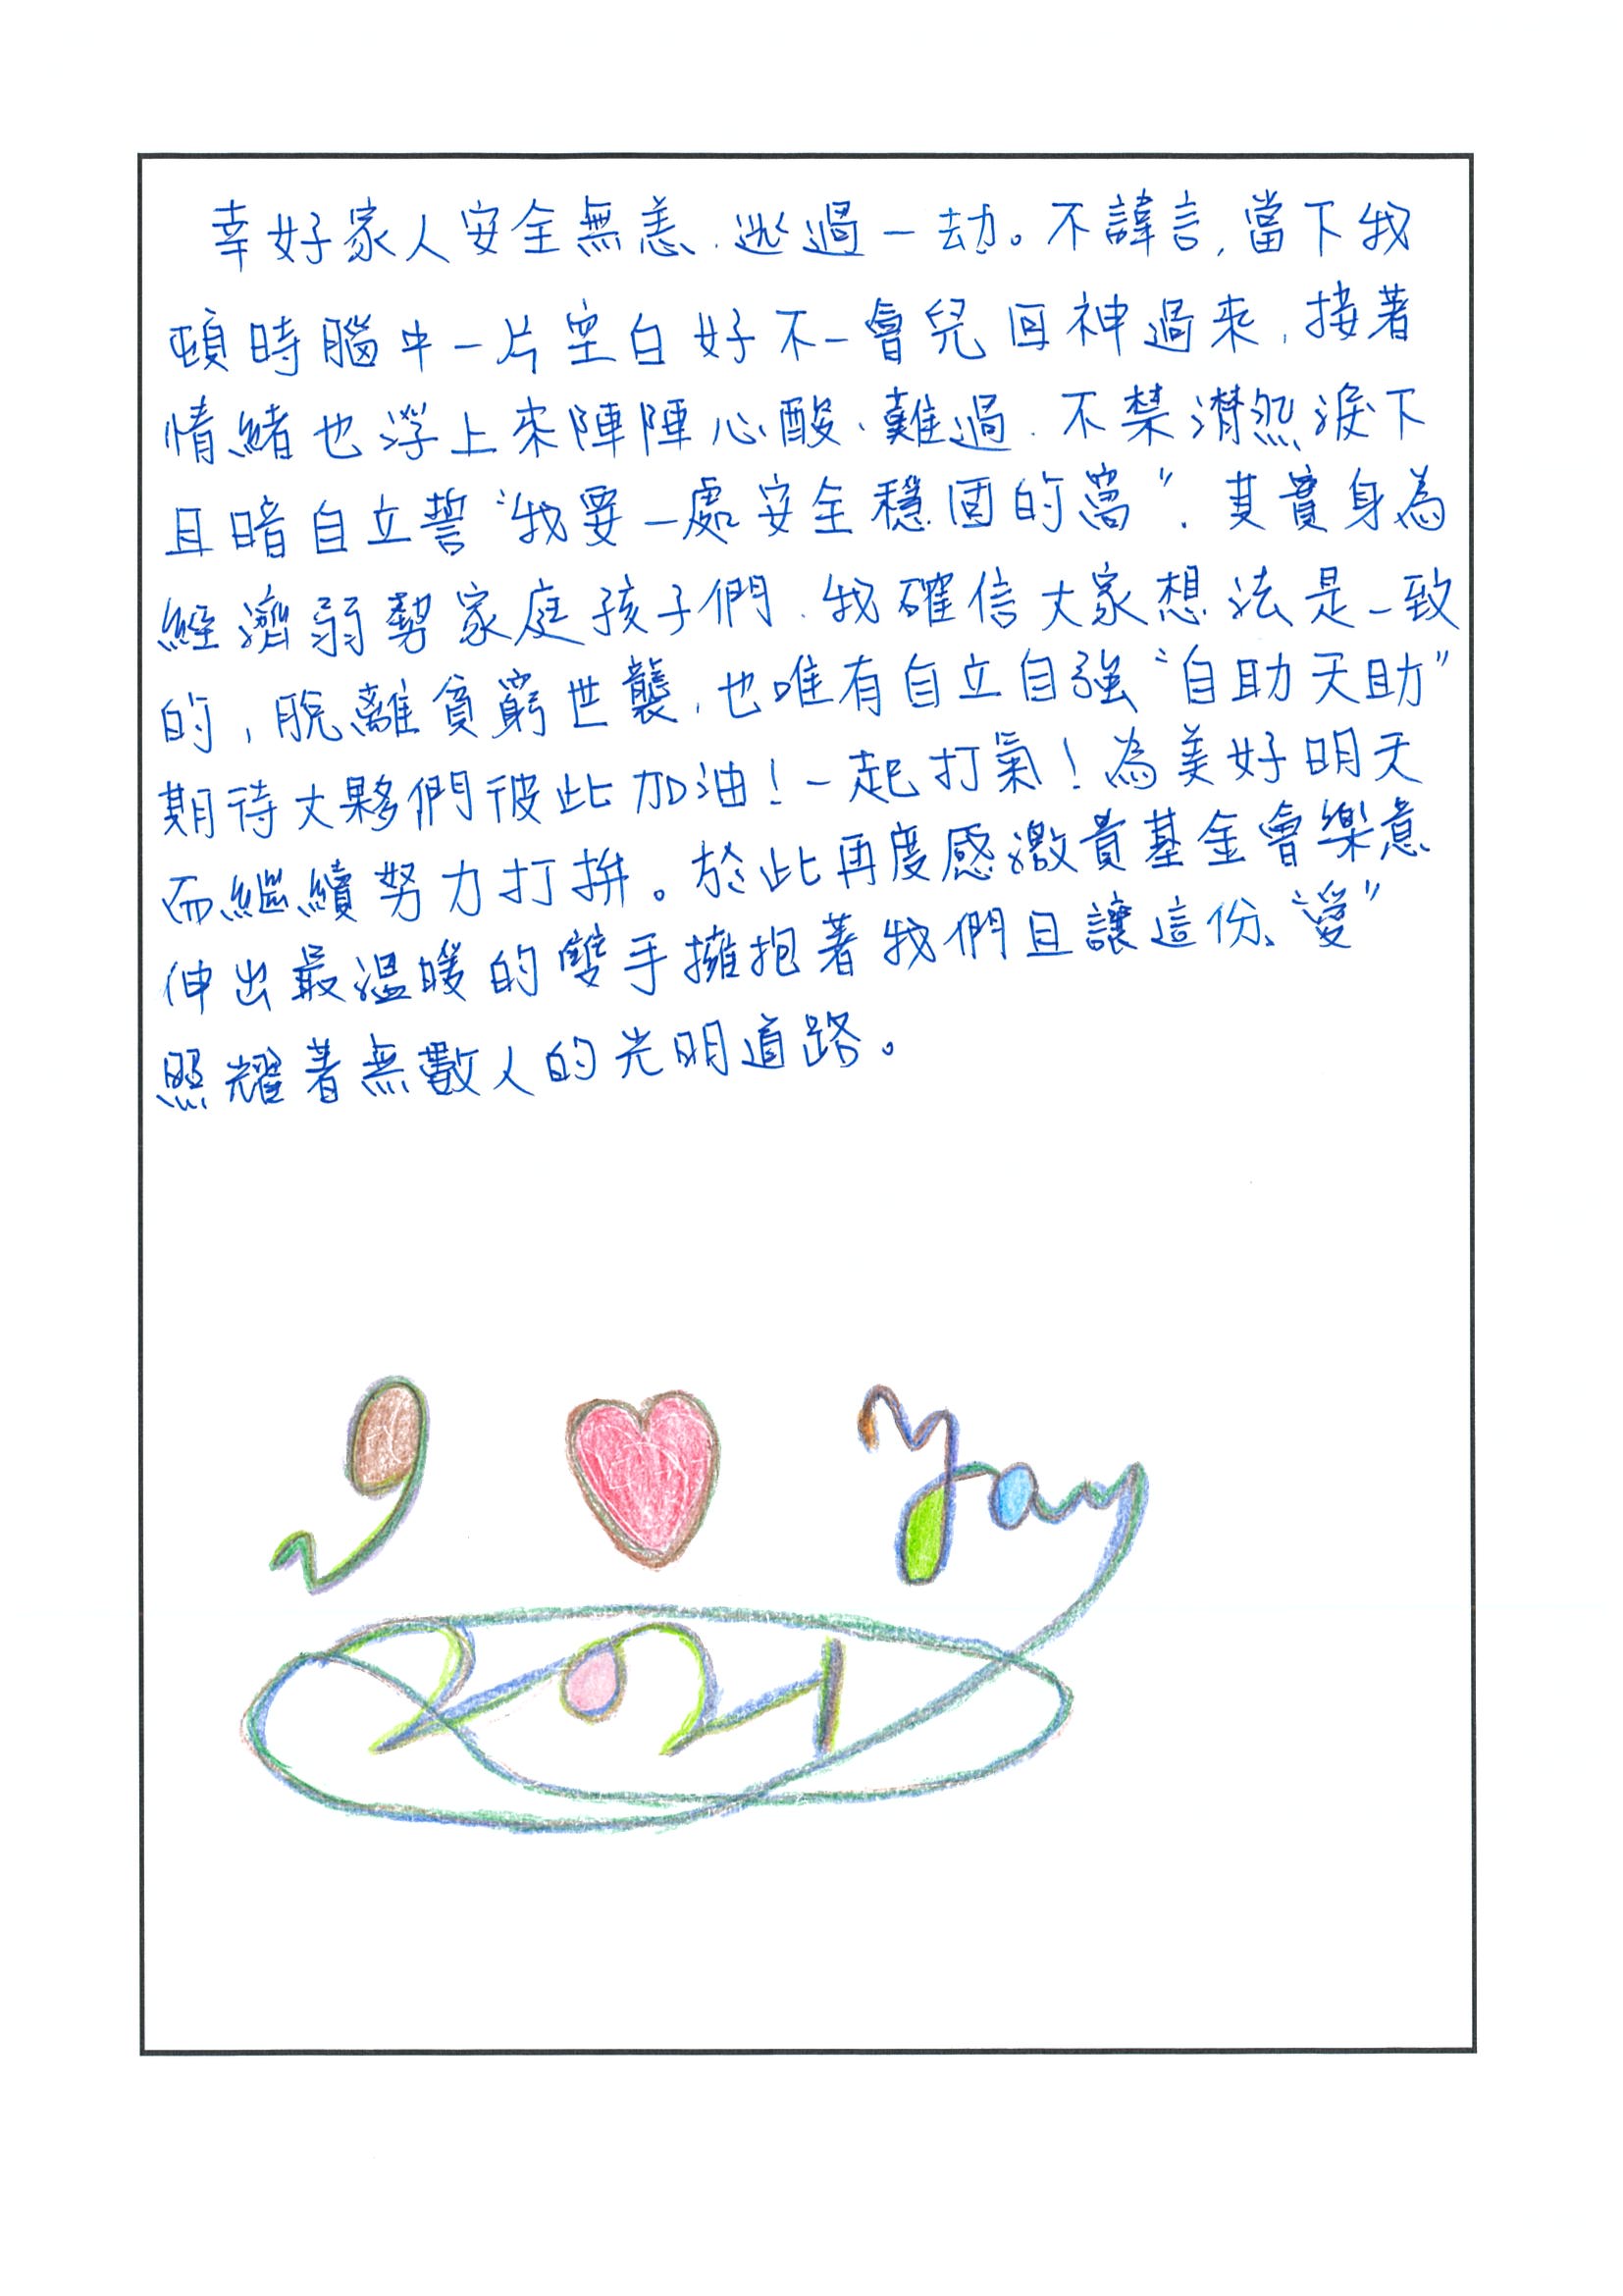 幸好家人安全無恙，逃過一劫。不諱言，當下我
頓時腦中一片空白好不一會兒回神過來，接著
情緒也浮上來陣陣心酸、難過，不禁潸然淚下
且暗自立誓“我要一處安全穩固的窩”。其實身為
經濟弱勢家庭孩子們，我確信大家想法是一致
的，脫離貧窮世襲，也唯有自立自強“自助天助”
期待大夥們彼此加油！一起打氣！為美好明天
而繼續努力打拚。於此再度感激貴基金會樂意
伸出最溫暖的雙手擁抱著我們且讓這份“愛”
照耀著無數人的光明道路。
I
2021